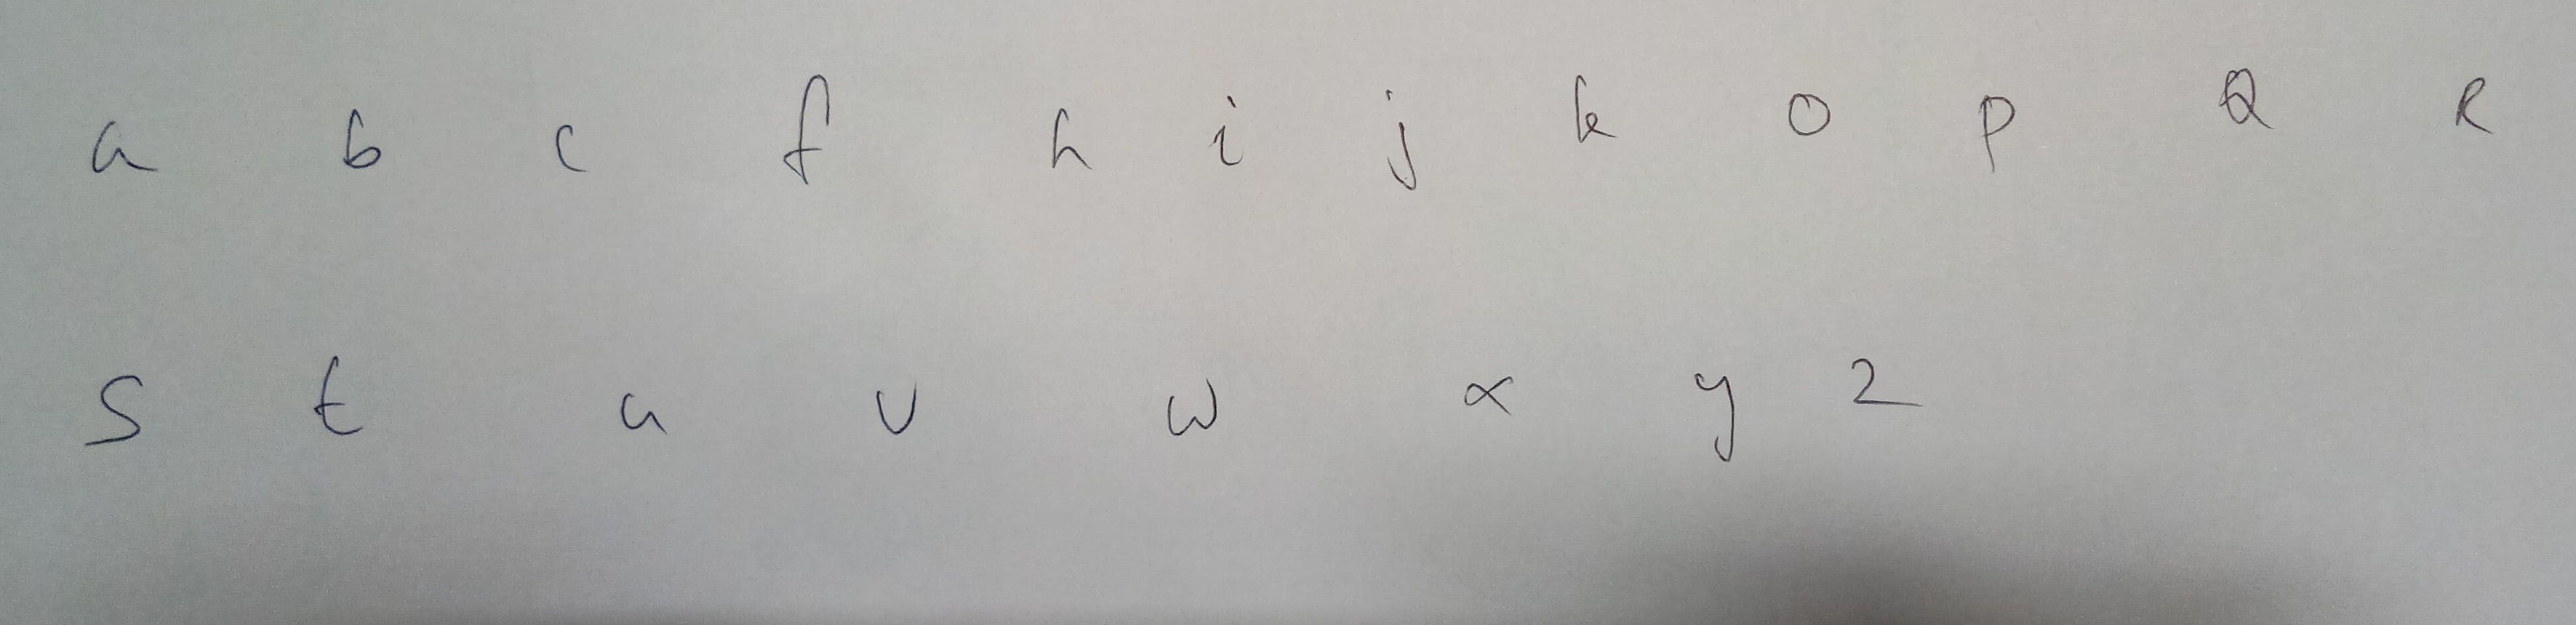 a b c f h i j k o p Q R
s t u v w x y z